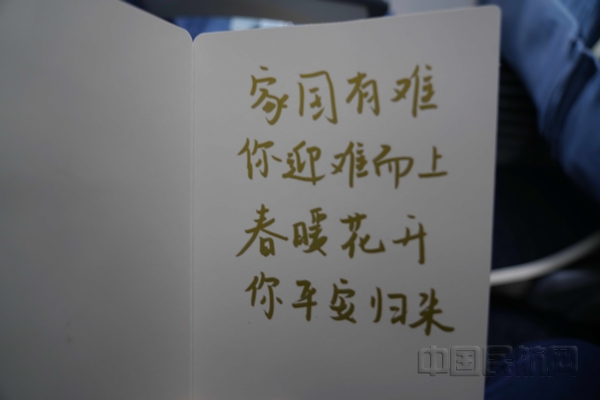 家国有难
你迎难而上
春暖花开
你平安归来
中国民航网